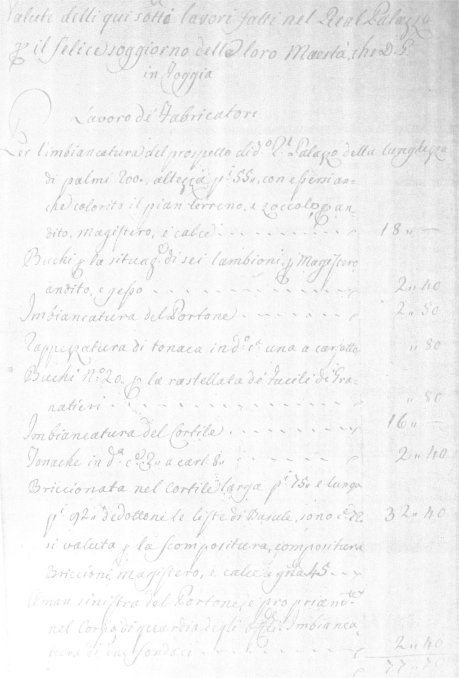 Valute delli qui sotto lavori fatti nel Real Palazzo
p il felice soggiorno delle loro Maestà, che D. G.
in Foggia
Lavoro de' Fabricatori
Per l'imbiancatura del prospetto di do Rl Palazzo della lunghezza
di palmi 200., altezza pi 55., con essersi an-
che colorito il pian terreno, e zoccolo, an-
dito, magistero, e calce . . . 18 „ —
Buchi p la situaz. di sei lambioni, p magistero
andito, e gesso . . . 2 „ 40
Imbiancatura del Portone . . . 2 „ 50
Rappezzatura di tonaca in do una a carlotto „ 80
Buchi No 20. p la rastellata de' fucili de' Gra-
natieri . . . „ 80
Imbiancatura del Cortile . . . 16 „ —
Tonache in da 2 „ 40
Briccionata nel cortile larga pi 75. e lunga
pi 92. dedottone le liste di Basule, sono 32 „ 40
si valuta p la scompositura, compositura
Briccioni, magistero, e calce
A man sinistra del Portone, e propriam.te
nel Corpo di guardia degli Imbianca
tura di due fondaci . . . 2 „ 40
77 „ 70